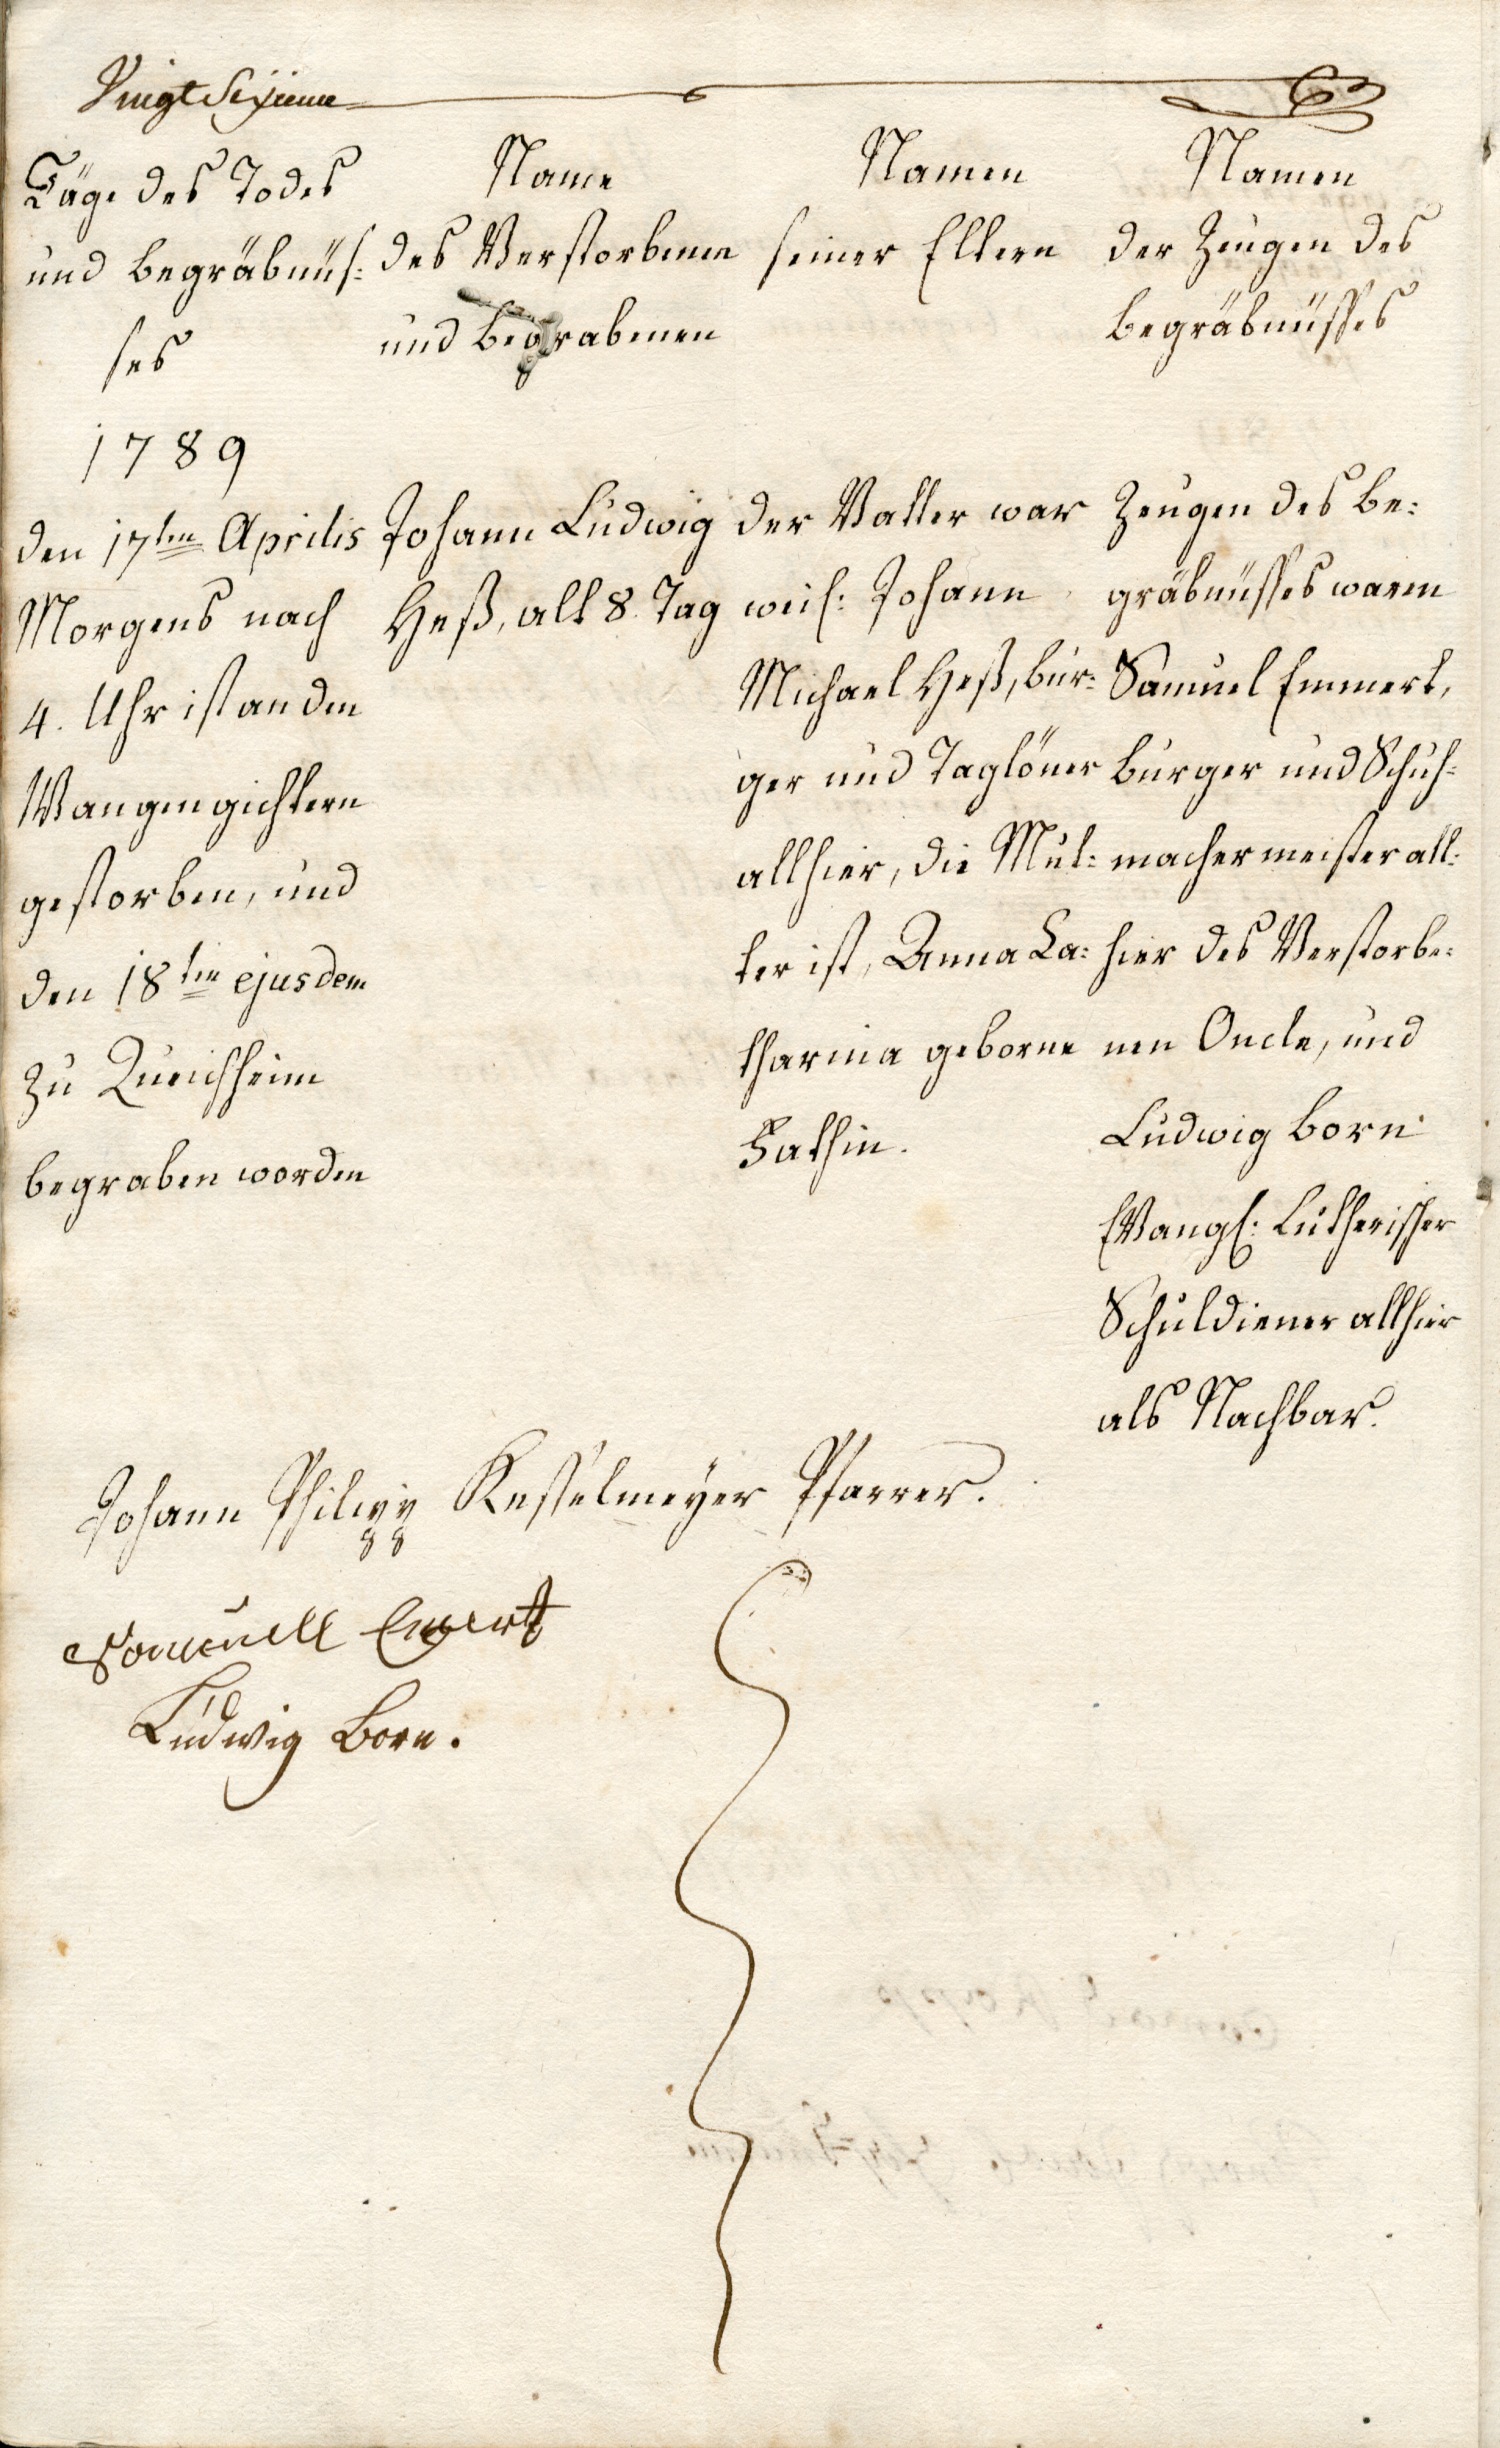 Vingt Sixieme
Täge des Todes
und Begräbnüs:
ses
1789
den 17ten Aprilis
Morgens nach
4. Uhr ist an den
Wangengichtern
gestorben, und
den 18ten ejusdem
zu Queichheim
begraben worden
Name
des Verstorbenen
und Begrabenen
Johann Ludwig
Heß, alt 8. Tag
Namen
seiner Eltern
der Vatter war
weil: Johann
Michael Heß, bur:
ger und Taglöner
allhier, die Mut:
ter ist, Anna Ca:
tharina geborne
Namen
der Zeugen des
Begräbnüsses
Zeugen des Be:
gräbnüsses waren
Samuel Emmert,
burger und Schuh:
machermeister all:
hier des Verstorbe:
nen Oncle, und
Ludwig Born
Evangl: Lutherischer
Schuldiener allhier
als Nachbar.
Johann Philipp Kesselmeyer Pfarrer.
Samuell Emert
Ludwig Born.